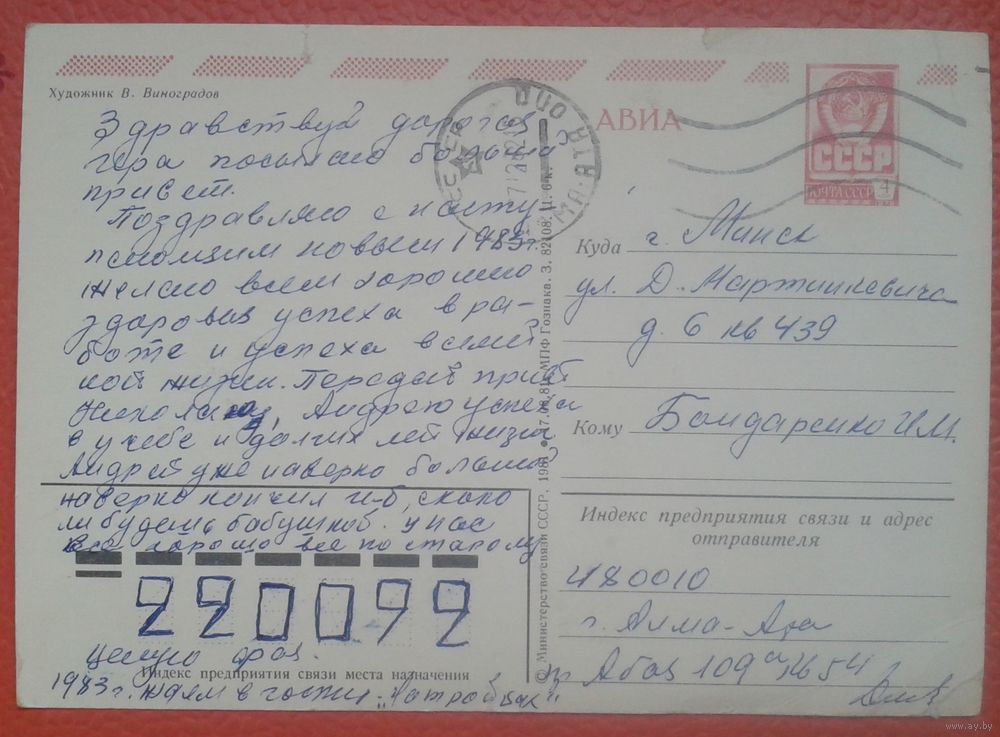 Художник В. Виноградов
Здравствуй дорогая
гера посылаю большой
привет.
Поздравляю с насту
пающим новым 1983г.
желаю всем хорошего
здоровья успеха в ра-
боте и успеха в
ной жизни. Передай привет
Николаю, Андрею успеха
в учебе и долгих лет жизни
Андрей уже наверно большой
наверно кончил и-б, скоро
ли будешь бабушкой. у нас
все хорошо все по старому
220092
целую
Индекс предприятия связи места назначения
1983г. ждем в гости
© Министерство связи СССР. 1981
МПФ Гознака. З. 82108. Ц. 6 к.
АЛМА-АТА
АВИА
СССР
ПОЧТА СССР 4
Куда г. Минск
ул. Д. Мартинкевича
д. 6 кв 439
Кому Бондаренко И.М.
Индекс предприятия связи и адрес
отправителя
480010
г. Алма-Ата
пр Абая 109а кв 54
www.ay.by